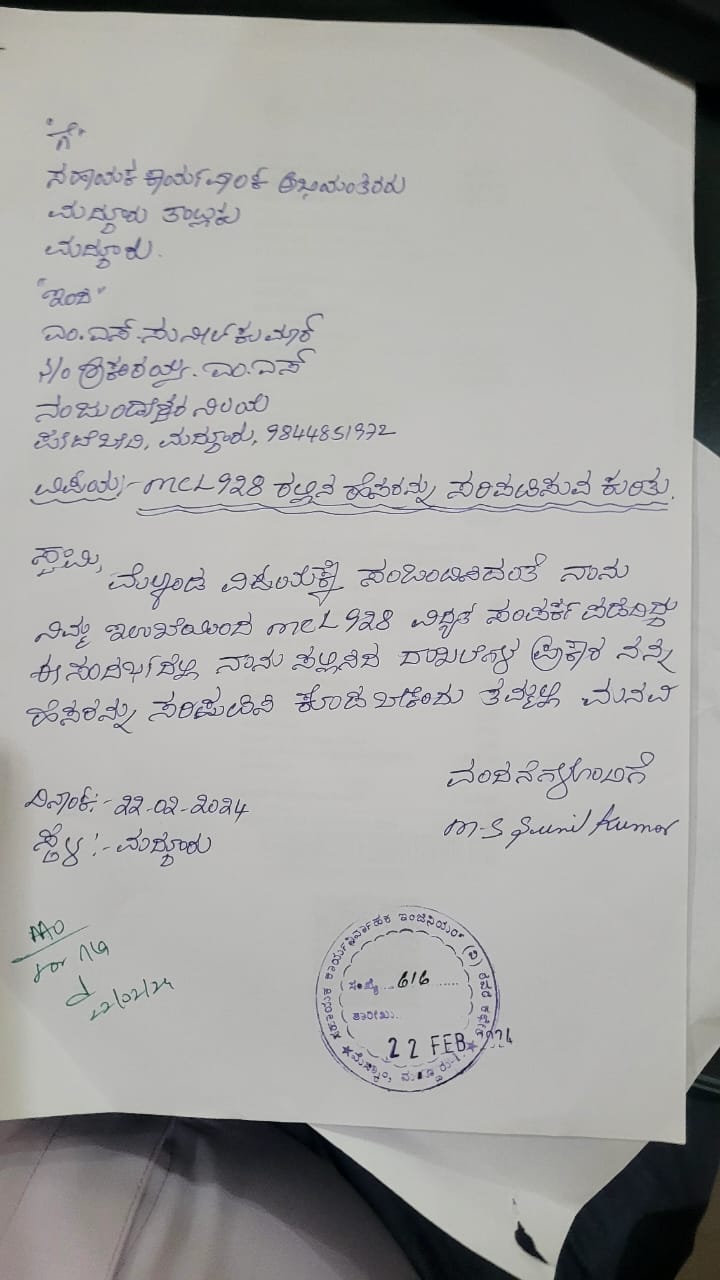 "ಗೆ"
ಸಹಾಯಕ ಕಾರ್ಯಪಾಲಕ ಅಭಿಯಂತರರು
ಮದ್ದೂರು ತಾಲ್ಲೂಕು
ಮದ್ದೂರು.
"ಇಂದ"
ಎಂ.ಎಸ್.ಸುನೀಲ್ ಕುಮಾರ್
S/o ಶ್ರೀಕಂಠಯ್ಯ. ಎಂ.ಎಸ್
ನಂಜುಂಡೇಶ್ವರ ನಿಲಯ
ಪೇಟೆಬೀದಿ, ಮದ್ದೂರು, 9844851972
ವಿಷಯ:- MCL928 ಕಲ್ಲಿನ ಹೆಸರನ್ನು ಸರಿಪಡಿಸುವ ಕುರಿತು.
ಸ್ವಾಮಿ,
ಮೇಲ್ಕಂಡ ವಿಷಯಕ್ಕೆ ಸಂಬಂಧಿಸಿದಂತೆ ನಾನು
ನಿಮ್ಮ ಇಲಾಖೆಯಿಂದ MCL928 ವಿದ್ಯುತ ಸಂಪರ್ಕ ಪಡೆದಿದ್ದು
ಈ ಸಂದರ್ಭದಲ್ಲಿ ನಾನು ಸಲ್ಲಿಸಿದ ದಾಖಲೆಗಳ ಪ್ರಕಾರ ನನ್ನ
ಹೆಸರನ್ನು ಸರಿಪಡಿಸಿ ಕೊಡಬೇಕೆಂದು ತಮ್ಮಲ್ಲಿ ಮನವಿ
ವಂದನೆಗಳೊಂದಿಗೆ
M-S Sunil Kumar
ದಿನಾಂಕ:-22-02-2024
ಸ್ಥಳ:-ಮದ್ದೂರು
AAO
22/02/24
ಸಹಾಯಕ ಕಾರ್ಯನಿರ್ವಾಹಕ ಇಂಜಿನಿಯರ್ (ವಿ) ರವರ ಕಛೇರಿ
ಸಂಖ್ಯೆ....616......
ತಾರೀಖು..
22 FEB 2024